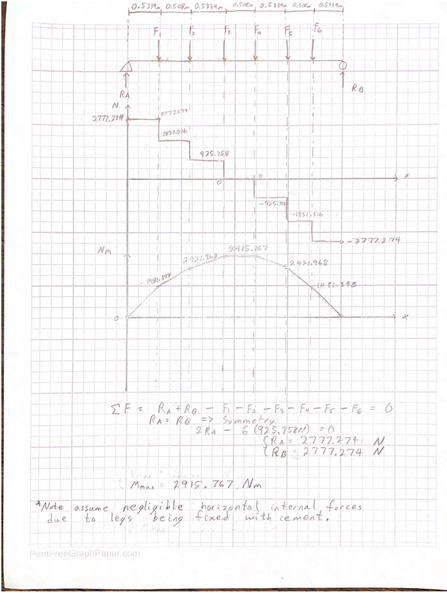 0.5334m 0.508m 0.5334m 0.508m 0.5334m 0.508m 0.5334m
F1 F2 F3 F4 F5 F6
RA RB
N
2777.274 2777.274
1851.516
925.758
0 0 x
-925.758
-1851.516
-2777.274
Nm
2915.767
2421.968 2421.968
1481.398 1481.398
0 x
ΣF = RA + RB - F1 - F2 - F3 - F4 - F5 - F6 = 0
RA = RB => Symmetry
2RA - 6(925.758N) = 0
{RA = 2777.274 N
{RB = 2777.274 N
Mmax = 2915.767 Nm
*Note assume negligible horizontal internal forces
due to legs being fixed with cement.
PrintFreeGraphPaper.com